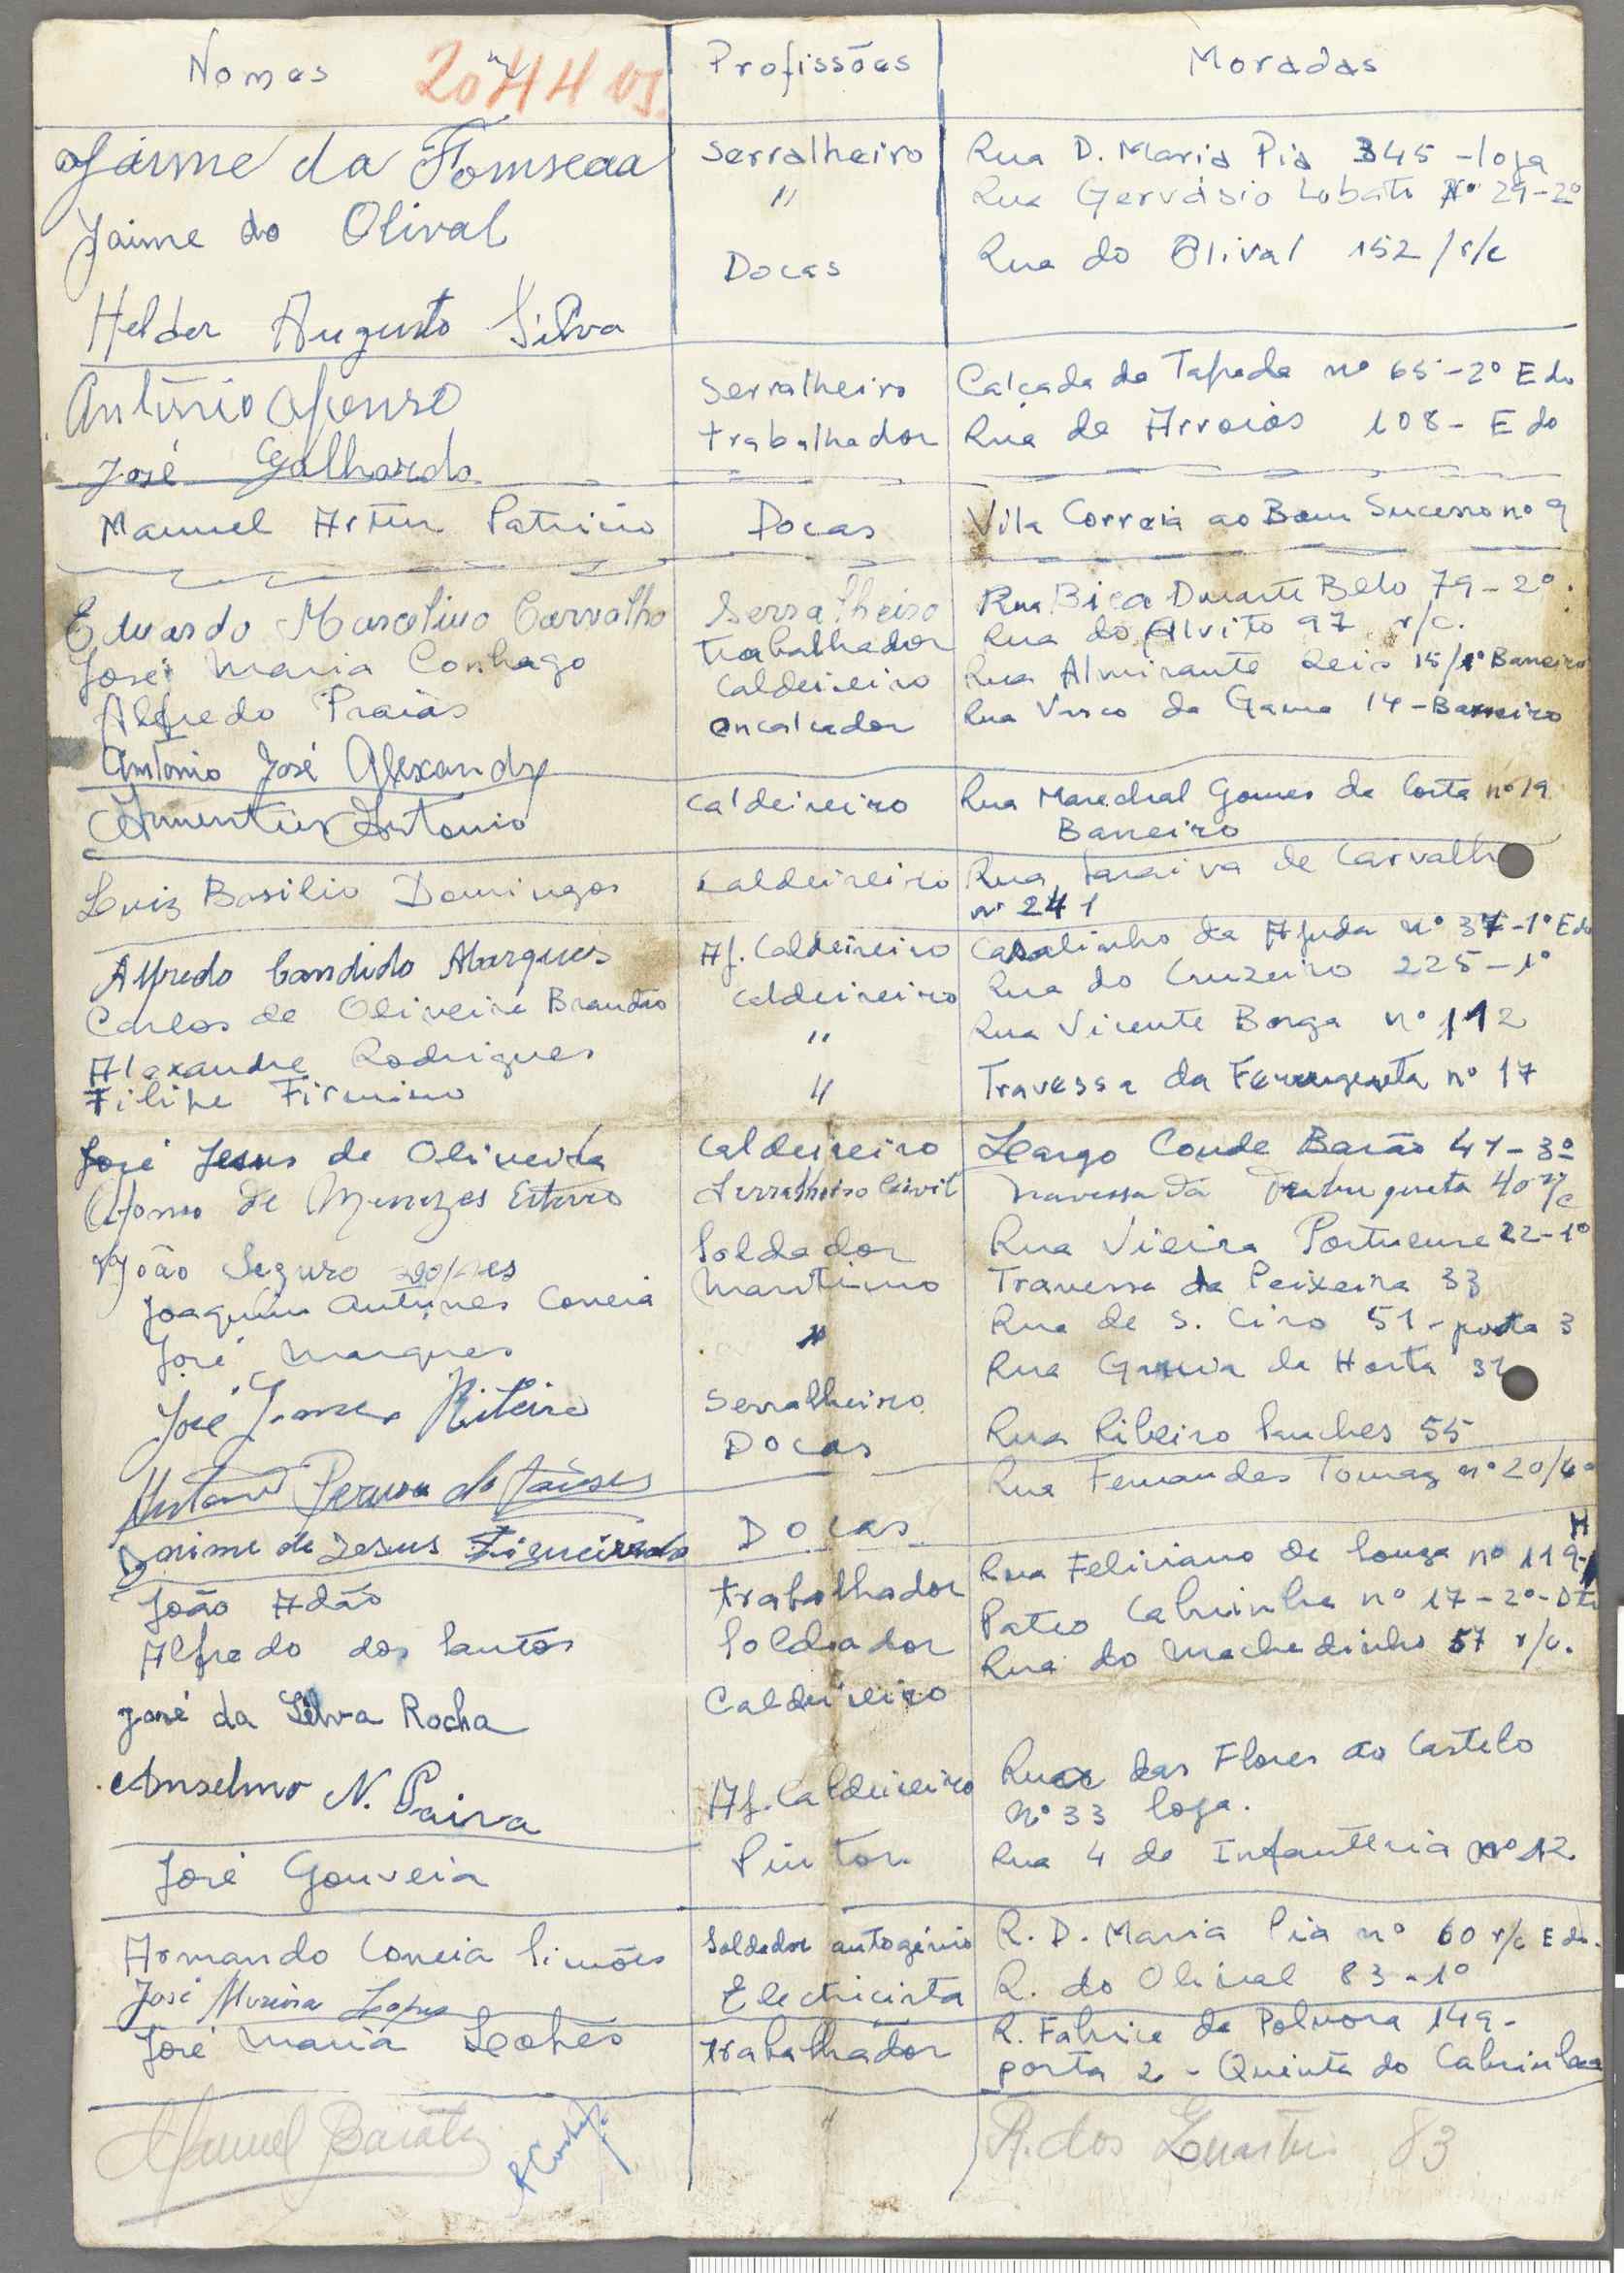 Nomes Profissões Moradas
Jaime da Fomseca Serralheiro Rua D. Maria Pia 345 - loja
Jaime do Olival " Rua Gervásio Lobato Nº 29-2º
Helder Augusto Silva Docas Rua do Olival 152 / r/c
António Afonso Serralheiro Calçada da Tapada nº 65-2º Edo
José Galhardo trabalhador Rua de Arroios 108 - Edo
Manuel Artur Patricio Docas Vila Correia ao Bom Sucesso nº 9
Eduardo Marcelino Carvalho Serralheiro Rua Bica Duarte Belo 79-2º.
José Maria Conhago trabalhador Rua do Alvito 97 r/c.
Alfredo Praias Caldeireiro Rua Almirante Reis 15/1º Barreiro
António José Alexandre encalcador Rua Vasco da Gama 14 - Barreiro
Armentier António Caldeireiro Rua Marechal Gomes da Costa nº 19
Barreiro
Luiz Basilio Domingos Caldeireiro Rua Saraiva de Carvalho
nº 241
Alfredo Candido Marques Aj. Caldeireiro Casalinho da Ajuda nº 37-1º Edo
Carlos de Oliveira Brandão Caldeireiro Rua do Cruzeiro 225-1º
Alexandre Rodrigues " Rua Vicente Borga nº 112
Filipe Firmino " Travessa da nº 17
José Jesus de Oliveira Caldeireiro Largo Conde Barão 47-3º
Afonso de Menezes Esteves Serralheiro Civil travessa da 40 r/c
João Seguro Soldador Rua Vieira Portuense 22-1º
Joaquim Antunes Correia Maritimo Travessa da Peixeira 33
José Marques " Rua de S. Ciro 51 - porta 3
José Gomes Ribeiro Serralheiro Rua Garcia da Horta
António Docas Rua Ribeiro Sanches 55
Jaime de Jesus Figueiredo Docas Rua Fernandes Tomaz nº 20/4º
João Adão trabalhador Rua Feliciano de Sousa nº 119
Alfredo dos Santos Soldador Pateo Cabrinha nº 17-2º-Dto
José da Silva Rocha Caldeireiro Rua do Machadinho 57 r/c.
Anselmo N. Paiva Aj. Caldeireiro Rua das Flores ao Castelo
nº 33 loja.
José Gouveia Pintor Rua 4 de Infanteria nº 12
Armando Correia Simões Soldador autogénio R. D. Maria Pia nº 60 r/c Edo.
José Moreira Lopes Electricista R. do Olival 83-1º
José Maria Leones trabalhador R. Fabrica da Polvora 149-
porta 2 - Quinta do Cabrinha
Manuel " R. dos 83